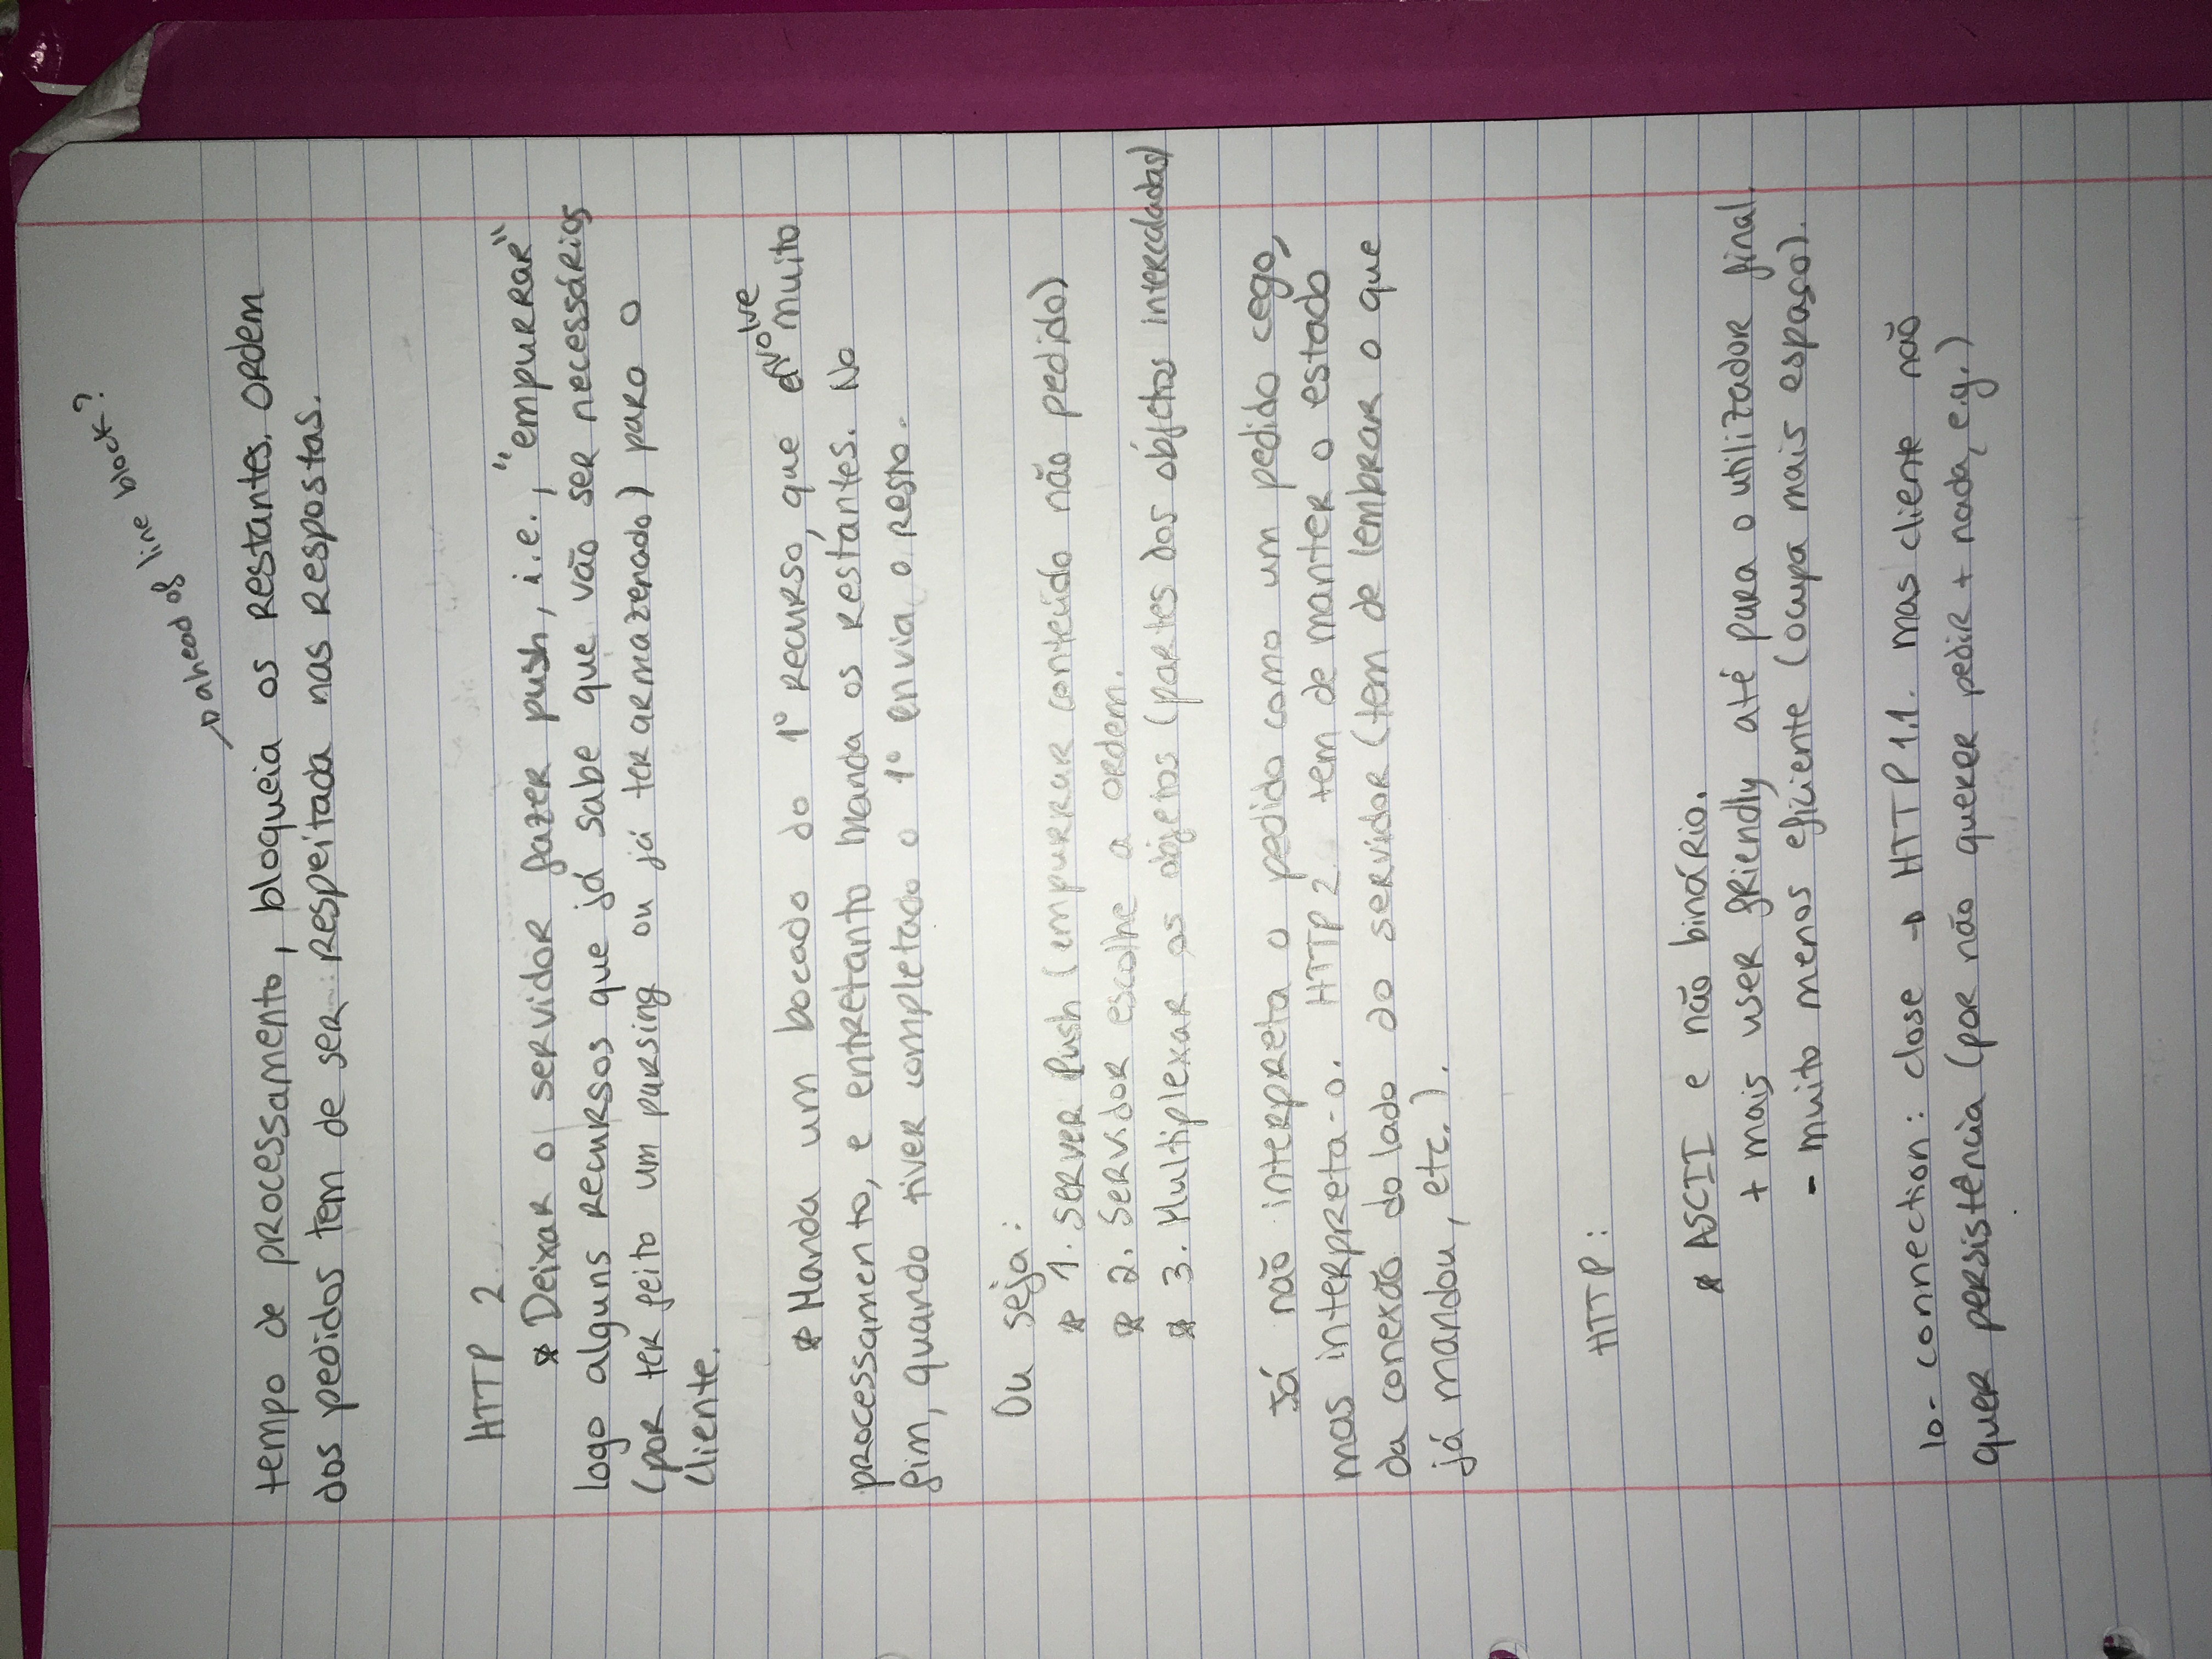 → ahead of line block?
tempo de processamento, bloqueia os restantes. Ordem
dos pedidos tem de ser respeitada nas respostas.
HTTP 2
* Deixar o servidor fazer push, i.e., "empurrar"
logo alguns recursos que já sabe que vão ser necessários
(por ter feito um parsing ou já ter armazenado) para o
cliente.
* Manda um bocado do 1º recurso, que envolve muito
processamento, e entretanto manda os restantes. No
fim, quando tiver completado o 1º envia o resto.
Ou seja:
* 1. Server Push (empurrar conteúdo não pedido)
* 2. Servidor escolhe a ordem.
* 3. Multiplexar os objetos (partes dos objetos intercaladas)
Já não interpreta o pedido como um pedido cego,
mas interpreta-o. HTTP 2 tem de manter o estado
da conexão do lado do servidor (tem de lembrar o que
já mandou, etc.).
HTTP:
* ASCII e não binário.
+ mais user friendly até para o utilizador final.
- muito menos eficiente (ocupa mais espaço).
10- connection: close → HTTP 1.1. mas cliente não
quer persistência (por não querer pedir + nada, e.g.)